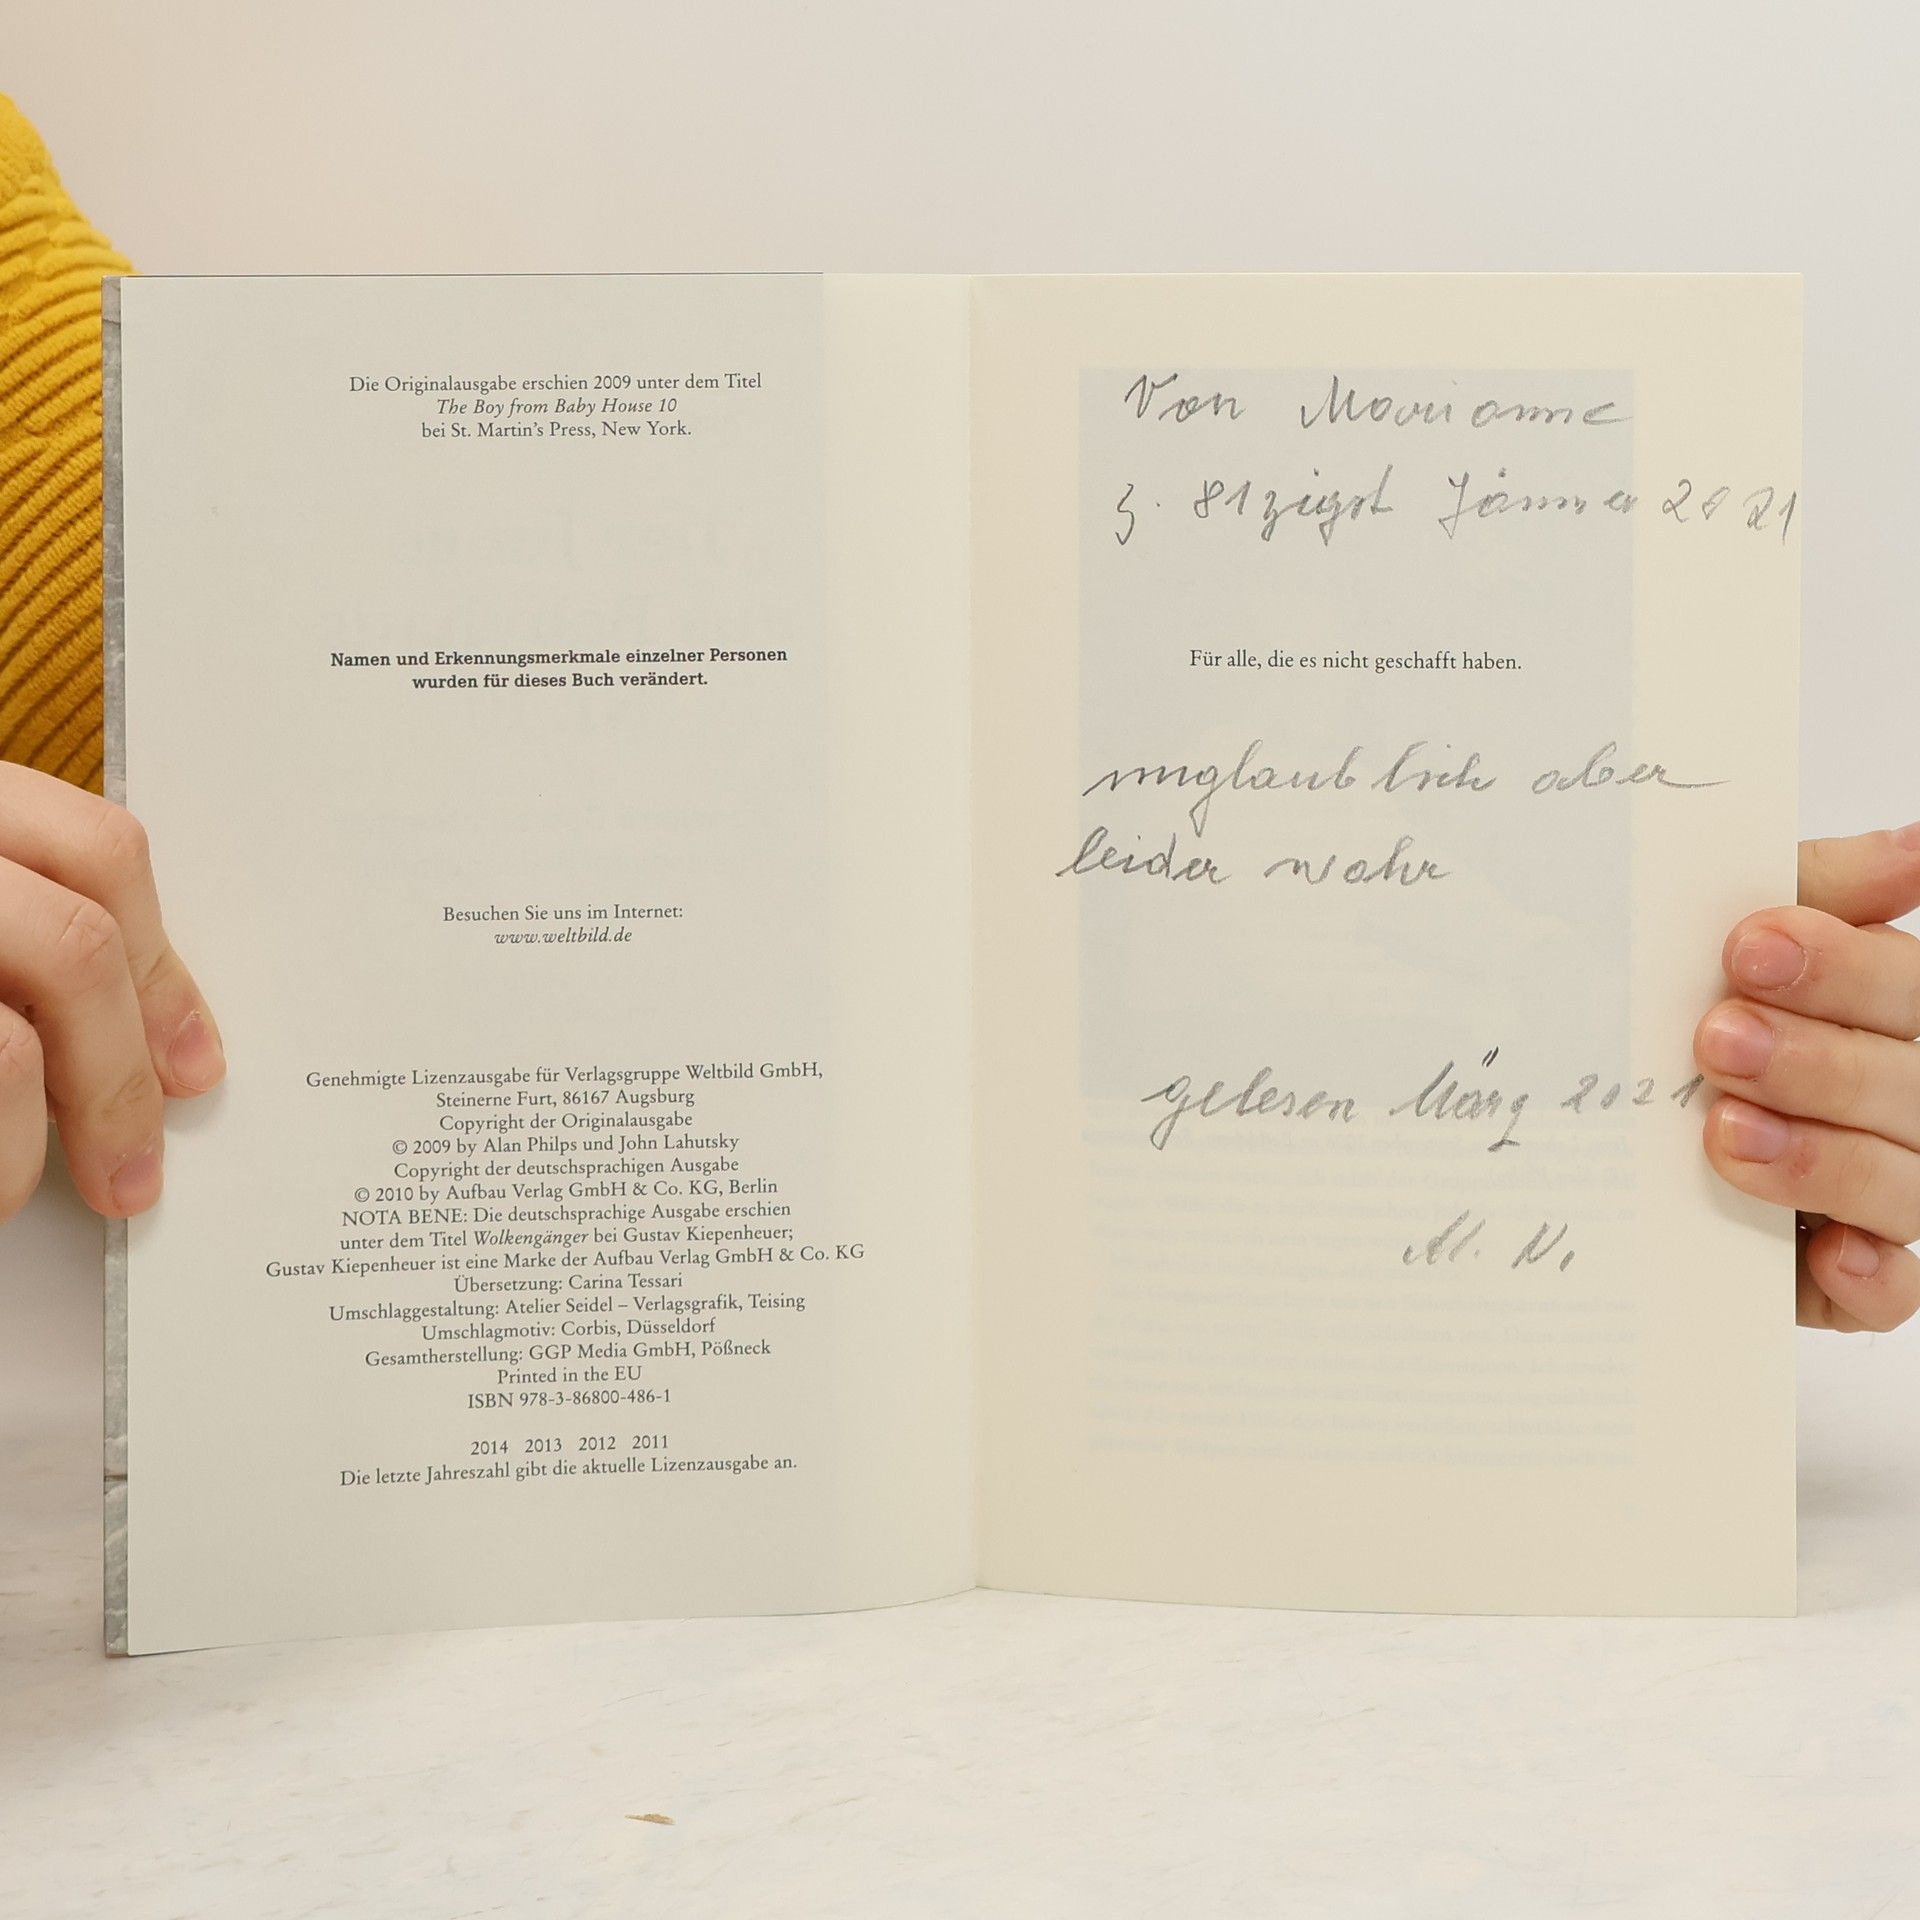 Die Originalausgabe erschien 2009 unter dem Titel
The Boy from Baby House 10
bei St. Martin's Press, New York.
Namen und Erkennungsmerkmale einzelner Personen
wurden für dieses Buch verändert.
Besuchen Sie uns im Internet:
www.weltbild.de
Genehmigte Lizenzausgabe für Verlagsgruppe Weltbild GmbH,
Steinerne Furt, 86167 Augsburg
Copyright der Originalausgabe
© 2009 by Alan Philps und John Lahutsky
Copyright der deutschsprachigen Ausgabe
© 2010 by Aufbau Verlag GmbH & Co. KG, Berlin
NOTA BENE: Die deutschsprachige Ausgabe erschien
unter dem Titel Wolkengänger bei Gustav Kiepenheuer;
Gustav Kiepenheuer ist eine Marke der Aufbau Verlag GmbH & Co. KG
Übersetzung: Carina Tessari
Umschlaggestaltung: Atelier Seidel – Verlagsgrafik, Teising
Umschlagmotiv: Corbis, Düsseldorf
Gesamtherstellung: GGP Media GmbH, Pößneck
Printed in the EU
ISBN 978-3-86800-486-1
2014 2013 2012 2011
Die letzte Jahreszahl gibt die aktuelle Lizenzausgabe an.
Von Marianne
z. 81zigst Jänner 2021
Für alle, die es nicht geschafft haben.
unglaublich aber
leider wahr
gelesen März 2021
M. N.